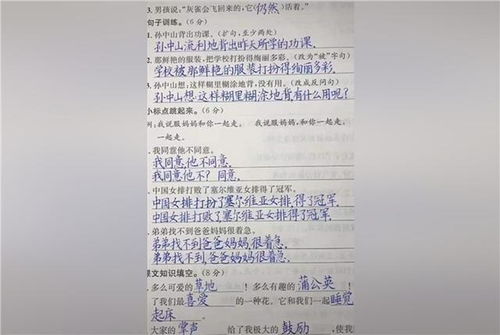 3. 男孩说:“灰雀会飞回来的,它(仍然)活着。”
句子训练。(6分)
1. 孙中山背出功课。(扩句,至少两处)
孙中山流利地背出昨天所学的功课.
2. 那鲜艳的服装,把学校打扮得绚丽多彩。(改为“被”字句)
学校被那鲜艳的服装打扮得绚丽多彩.
3. 孙中山想:这样糊里糊涂地背,没有用。(改成反问句)
孙中山想:这样糊里糊涂地背,有什么用呢?
小标点跳起来。(6分)
例:我说服妈妈和你一起走。 我说服妈妈,和你一起走。
一起走。
我同意他不同意。
我同意,他不同意.
我同意他不?同意.
中国女排打败了塞尔维亚女排得了冠军。
中国女排打扮了塞尔维亚女排,得了冠军.
中国女排打败了,塞尔维亚女排得了冠军.
弟弟找不到爸爸妈妈很着急。
弟弟找不到爸爸,妈妈很着急.
弟弟找不到爸爸妈妈,很着急.
课文知识填空。(8分)
多么可爱的草地!多么有趣的蒲公英!
了我们最喜爱的一种花。它和我们一起睡觉
起床.
大家的掌声给了我极大的鼓励,使我